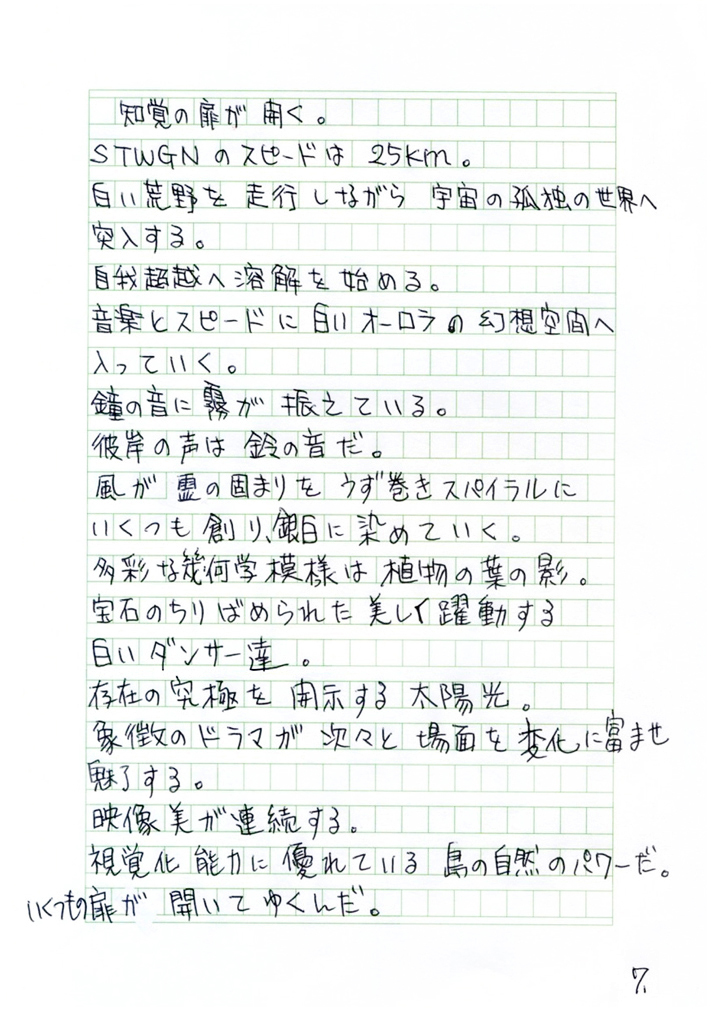 知覚の扉が開く。
STWGNのスピードは 25km。
白い荒野を走行しながら 宇宙の孤独の世界へ
突入する。
自我超越へ溶解を始める。
音楽とスピードに白いオーロラの幻想空間へ
入っていく。
鐘の音に霧が振えている。
彼岸の声は鈴の音だ。
風が霊の固まりをうず巻きスパイラルに
いくつも創り、銀白に染めていく。
多彩な幾何学模様は植物の葉の影。
宝石のちりばめられた美しく躍動する
白いダンサー達。
存在の究極を開示する太陽光。
象徴のドラマが次々と場面を変化に富ませ
魅了する。
映像美が連続する。
視覚化能力に優れている島の自然のパワーだ。
いくつもの扉が開いてゆくんだ。
7.